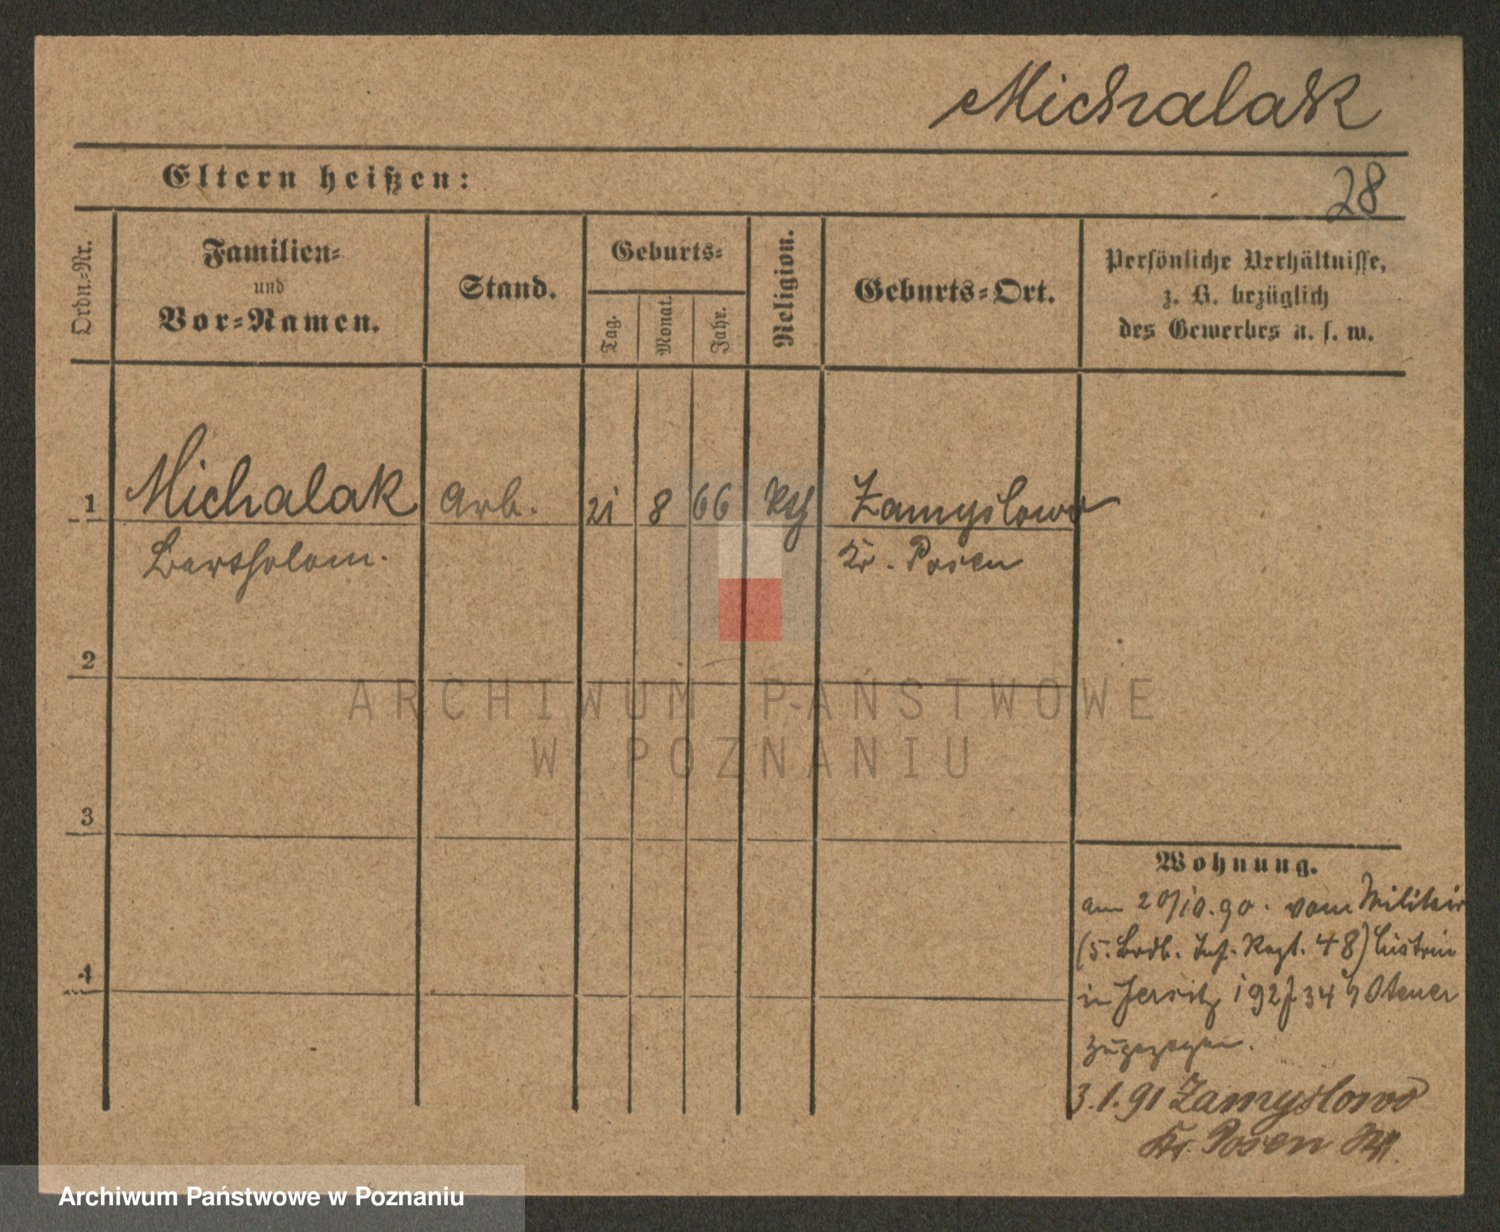 Michalak
Eltern heißen:
28
Ordn.-Nr.
Familien-
und
Vor-Namen.
Stand.
Geburts-
Tag.
Monat.
Jahr.
Religion.
Geburts-Ort.
Persönliche Verhältnisse,
z. B. bezüglich
des Gewerbes u. s. w.
1
Michalak
Arb.
21
8
66
Kth
Zamyslowo
Bartholom.
Kr. Posen
2
3
4
Wohnung.
am 20/10.90. vom Militair
(5. Brdb. Inf. Regt. 48) Cüstrin
in Jersitz
zugezogen.
3.1.91 Zamyslowo
Kr. Posen
ARCHIWUM PAŃSTWOWE
W POZNANIU
Archiwum Państwowe w Poznaniu